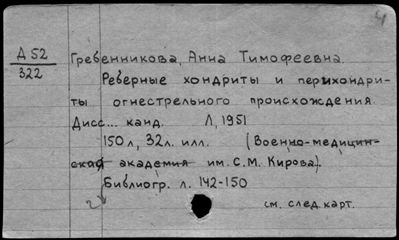 4
Д 52
322
Гребенникова, Анна Тимофеевна.
Реберные хондриты и перихондри-
ты огнестрельного происхождения.
Дисс... канд. Л, 1951
150 л, 32 л. илл. (Военно-медицин-
ская академия им. С.М. Кирова).
Библиогр. л. 142-150
2
см. след. карт.